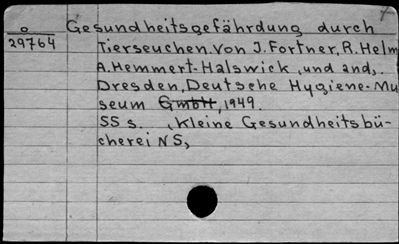 o
29764
Gesundheitsgefährdung durch
Tierseuchen. Von J. Fortner, R. Helm
A. Hemmert-Halswick, und and,.
Dresden, Deutsche Hygiene-Mu
seum GmbH, 1949.
55 s. , Kleine Gesundheitsbü-
cherei NS,